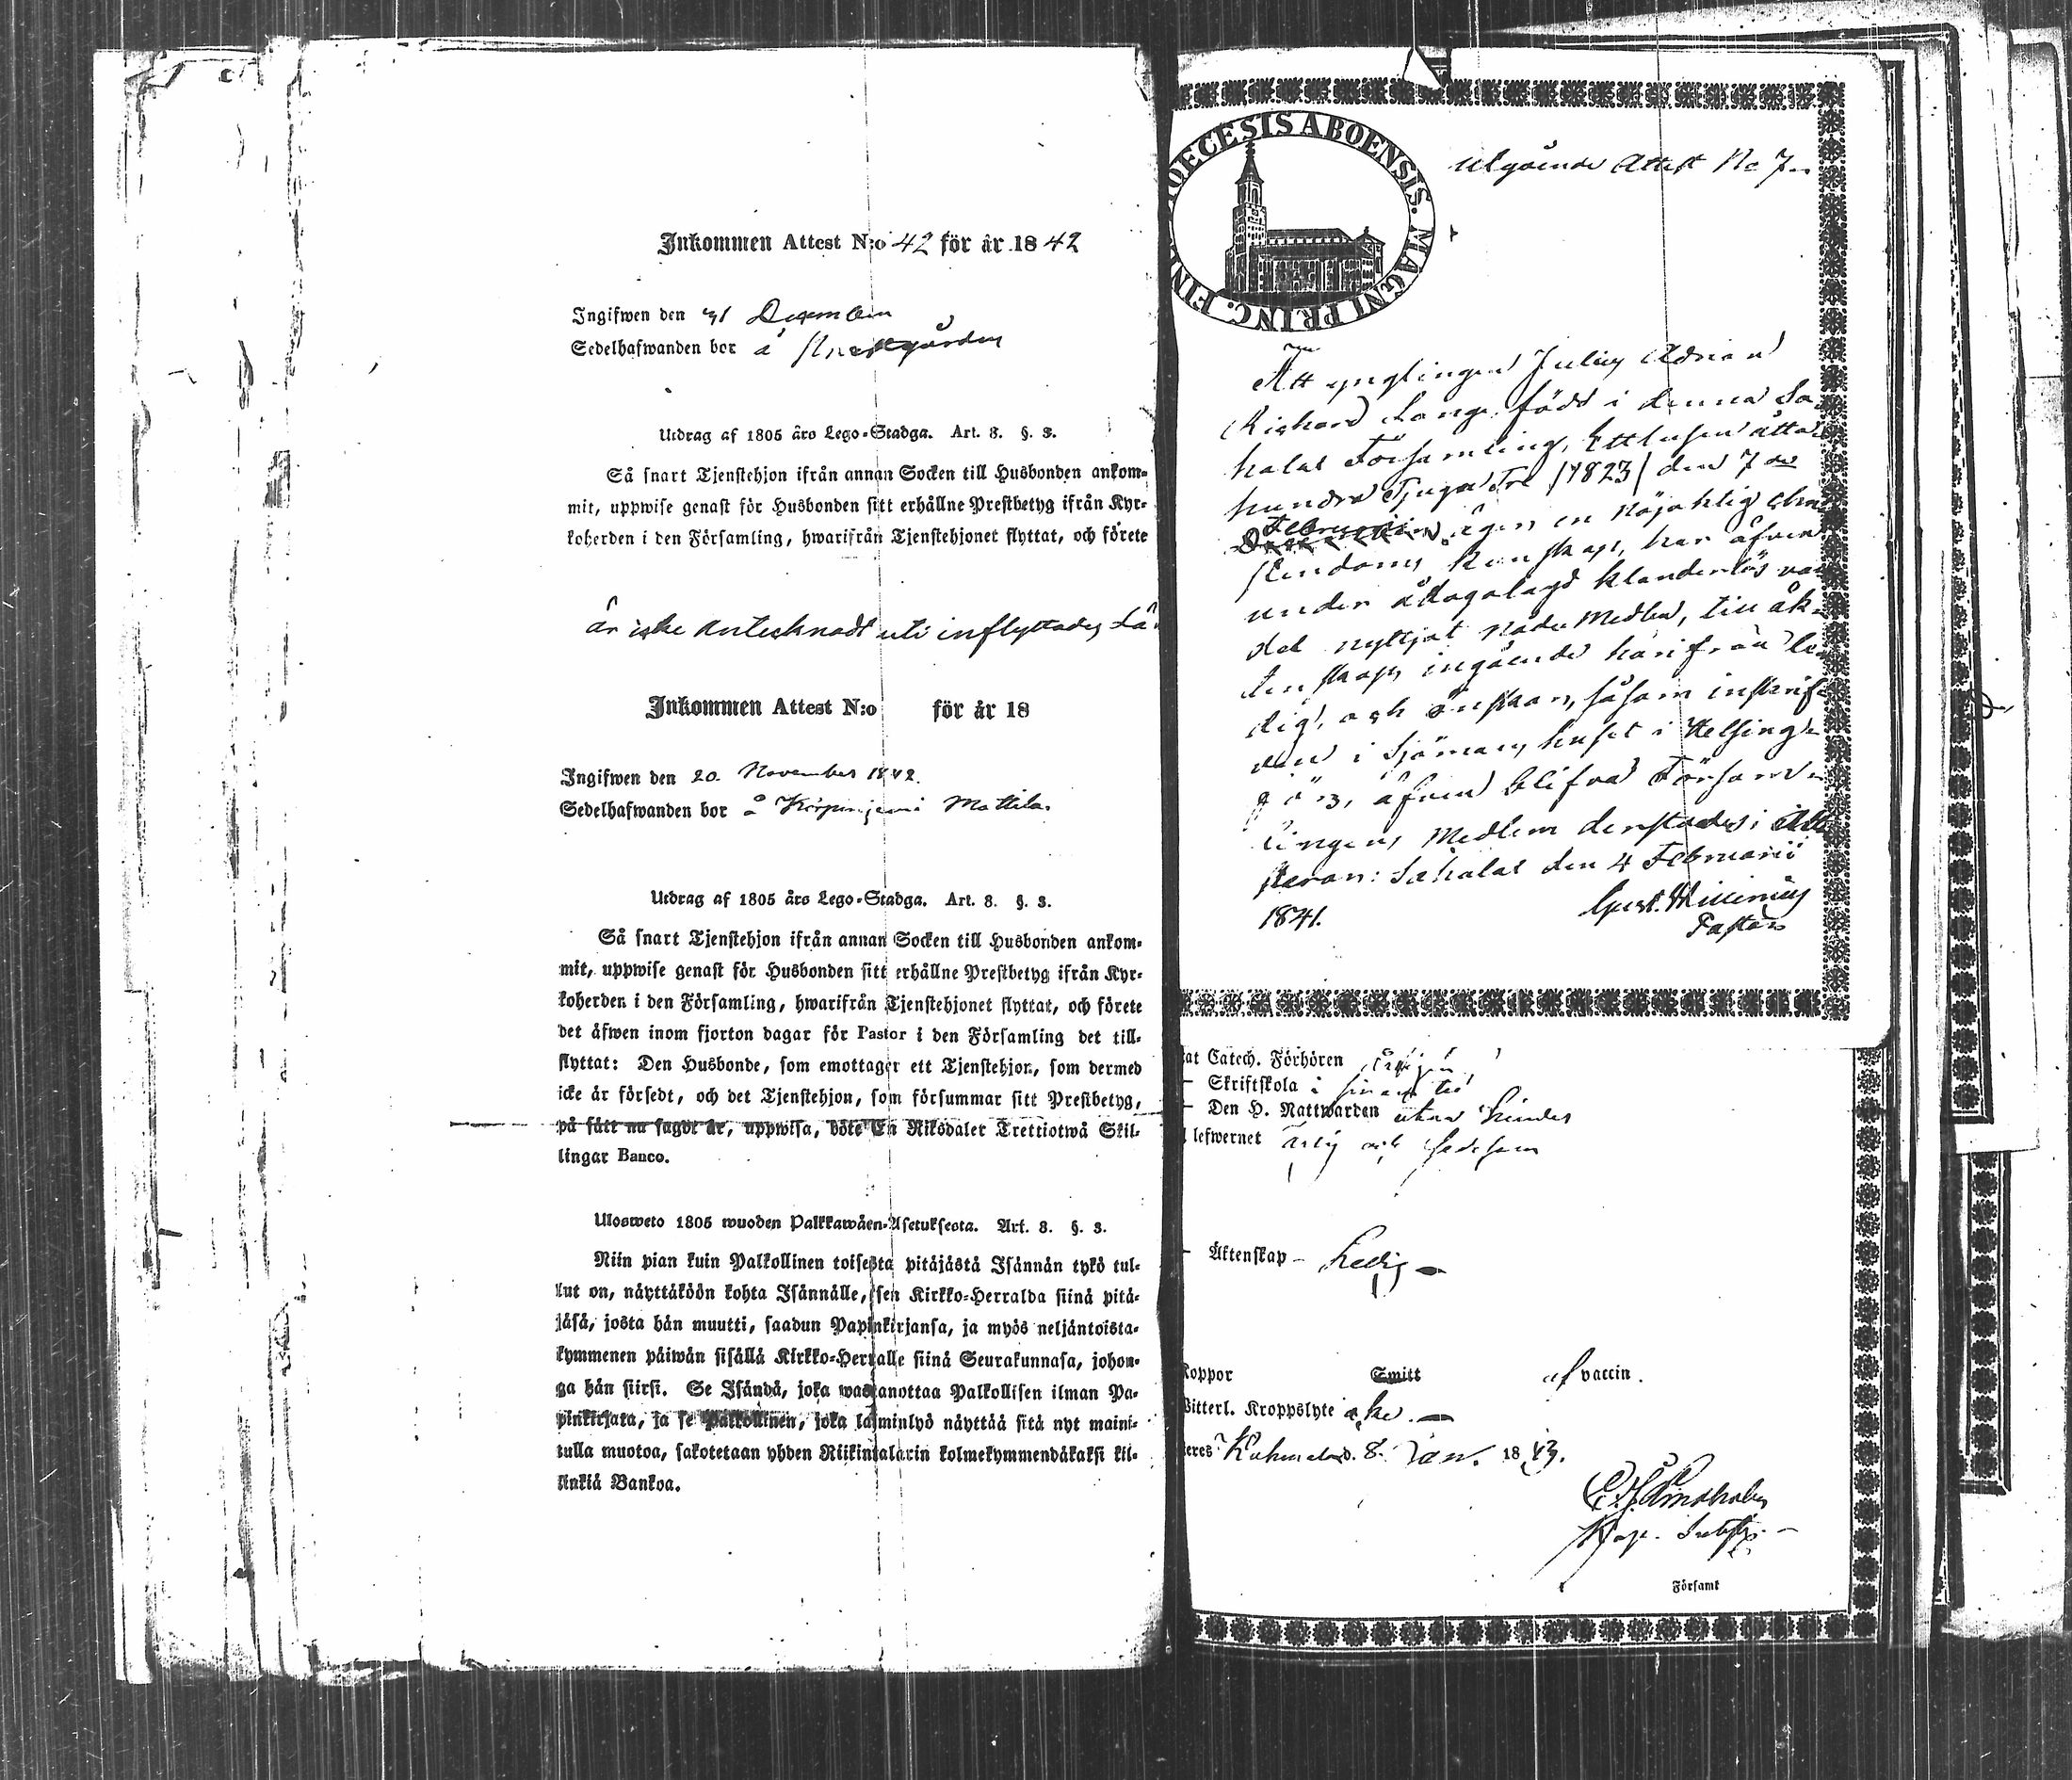 Inkommen Attest N:o 42 för år 1842
Ingifwen den 31 December
Sedelhafwanden bor å Prestgården
Utdrag af 1805 års Lego-Stadga. Art. 8. §. 3.
Så snart Tjenstehjon ifrån annan Socken till Husbonden ankom-
mit, uppwise genast för Husbonden sitt erhållne Prestbetyg ifrån Kyr-
koherden i den Församling, hwarifrån Tjenstehjonet flyttat, och förete
är icke antecknadt uti inflyttades
Inkommen Attest N:o för år 18
Ingifwen den 20. November 1842.
Sedelhafwanden bor å Mattila
Utdrag af 1805 års Lego-Stadga. Art. 8. §. 3.
Så snart Tjenstehjon ifrån annan Socken till Husbonden ankom-
mit, uppwise genast för Husbonden sitt erhållne Prestbetyg ifrån Kyr-
koherden i den Församling, hwarifrån Tjenstehjonet flyttat, och förete
det äfwen inom fjorton dagar för Pastor i den Församling det till-
flyttat: Den Husbonde, som emottager ett Tjenstehjon, som dermed
icke är försedt, och det Tjenstehjon, som försummar sitt Prestbetyg,
på sätt nu sagdt är, uppwisa, böte En Riksdaler Trettiotwå Skil-
lingar Banco.
Ulosweto 1805 wuoden Palkkawäen-Asetuksesta. Art. 8. §. 3.
Niin pian kuin Palkollinen toisesta pitäjästä Isännän tykö tul-
lut on, näyttäköön kohta Isännälle, sen Kirkko-Herralda siinä pitä-
jäsä, josta hän muutti, saadun Papinkirjansa, ja myös neljäntoista-
kymmenen päiwän sisällä Kirkko-Herralle siinä Seurakunnasa, johon-
ga hän siirsi. Se Isändä, joka wastanottaa Palkollisen ilman Pa-
pinkirjata, ja se Palkollinen, joka laiminlyö näyttää sitä nyt maini-
tulla muotoa, sakotetaan yhden Riikintalarin kolmekymmendäkaksi kil-
linkiä Bankoa.
DIOECESIS ABOENSIS. MAGNI PRINC. FIN
Utgående Attest No 7
Att ynglingen Julius Adrian
Richard Lange född i denna Sa
halax Församling, Ettusen åtta
hundra Tjugu Tre /1823/ den 7 de
Februarii, äger en nöjaktig Chri
stendoms kunskap, har äfven
under ådagalagd klanderlös van
del nyttjat Nåde Medlen, till äk
tenskaps ingående härifrån le
dig, och önskar, såsom inskrif
ven i Sjömans huset i Helsing
fors, äfven blifva Försam
lingens Medlem derstädes; 
Sahalax den 4 Februarii
1841. Gust.
Pastor
tat Catech. Förhören
Skriftskola i
Den H. Nattwarden utan hinder
lefwernet ärlig och sedesam
Äktenskap – Ledig –
Koppor Smitt af vaccin.
Witterl. Kroppslyte icke. –
teres Kuhmalax d. 8. Jan. 1843.
Lindholm
Kap. Subst.
Församl